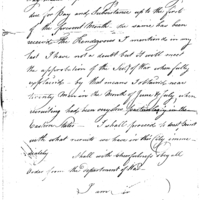 due for Pay and Subsistance up to the first
of the Present Month. as none has been
received. the Rendezvous I mentioned in my
last I have not a doubt but it will meet
the approbation of the Sec.y of War when fully
explained - by that means I obtained near
twenty Men in the Month of June & July when
recruiting had been very slow particularly in the
Eastern States - I shall proceed to
with what recruits we have in this City imme-
diately
Shall with chearfulness obey all
Orders from the department of War.
I am